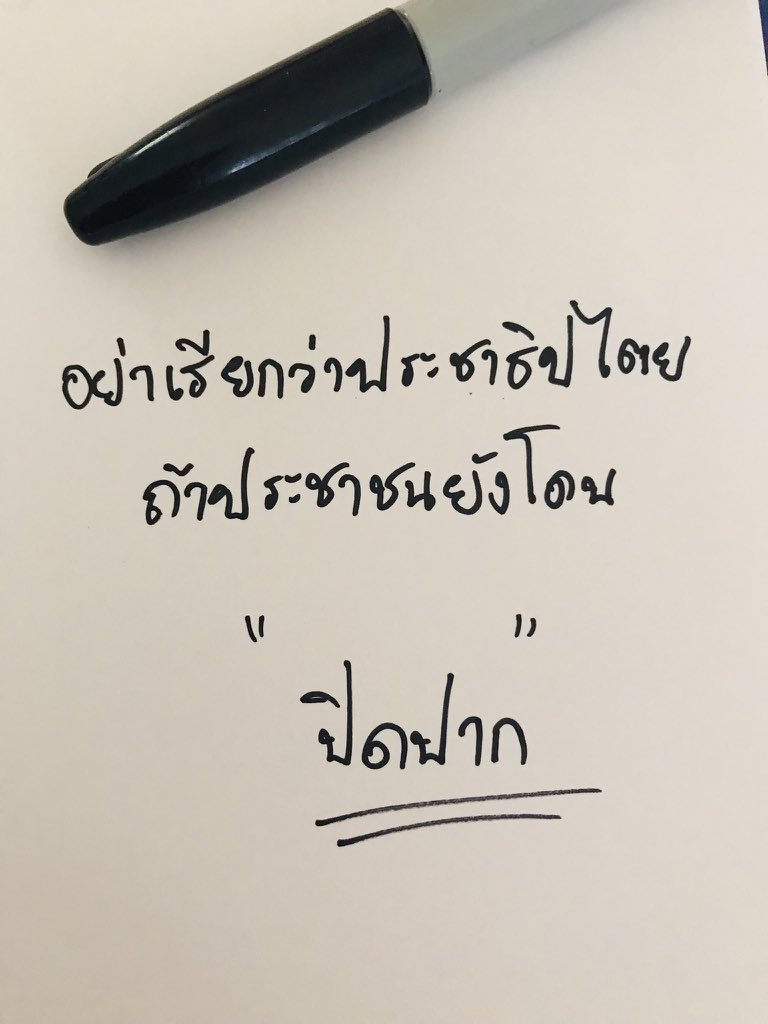 อย่าเรียกว่าประชาธิปไตย
ถ้าประชาชนยังโดน
"ปิดปาก"